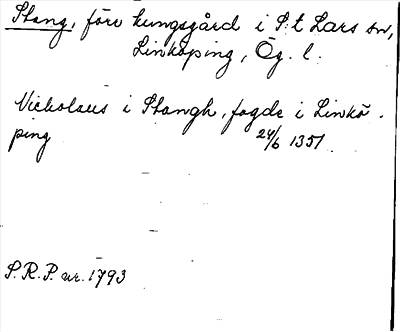 Stang, förr kungsgård i S:t Lars sn,
Linköping, Ög. l.
Nicholaus i Stangh, fogde i Linkö-
ping 24/6 1351.
S.R.P. nr. 1793